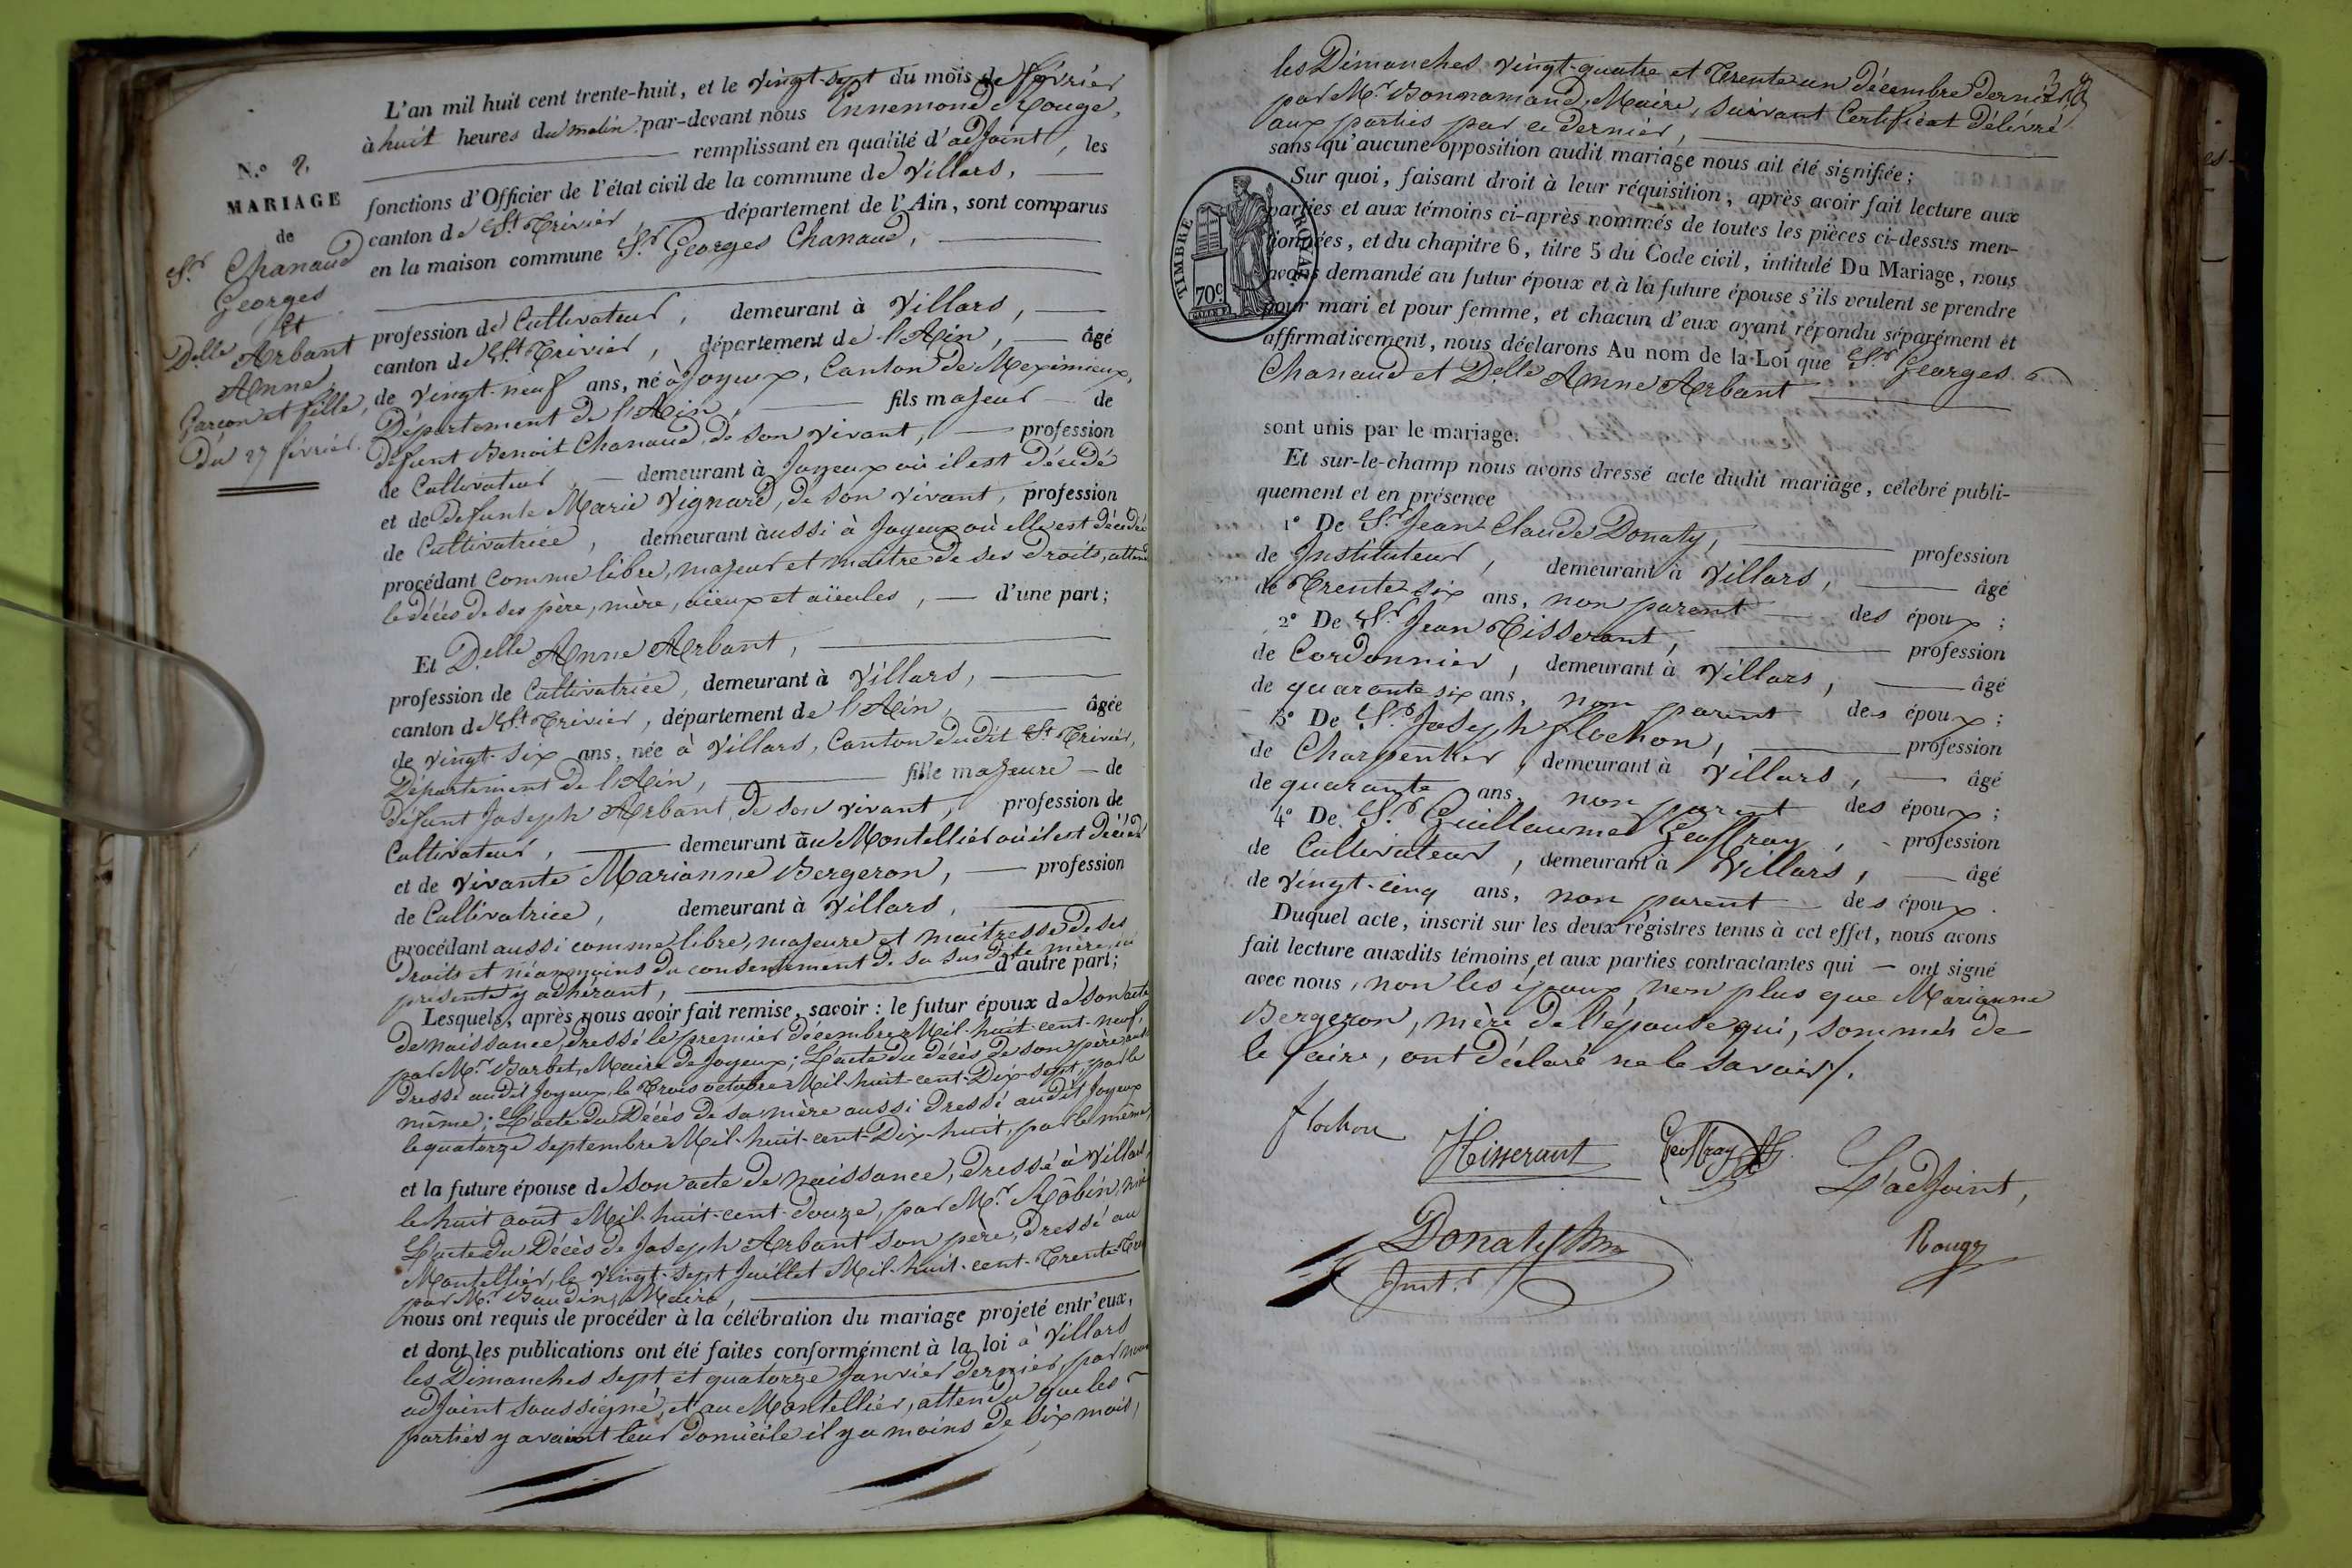 N.º 8.
MARIAGE
de
S.r Chanaud
Georges
Et
D.elle Arbant
Anne,
Garçon et fille,
Du 27 février.
L'an mil huit cent trente-huit, et le vingt-sept du mois de février
à huit heures du matin, par-devant nous Ennemond Rouge,
remplissant en qualité d'adjoint, les
fonctions d'Officier de l'état civil de la commune de Villars,
canton de St. Trivier, département de l'Ain, sont comparus
en la maison commune S.r Georges Chanaud,
profession de Cultivateur, demeurant à Villars,
canton de St. Trivier, département de l'Ain, âgé
de vingt-neuf ans, né à Joyeux, Canton de Meximieux,
Département de l'Ain, fils majeur de
défunt Benoit Chanaud, de son vivant, profession
de Cultivateur, demeurant à Joyeux où il est décédé
et de défunte Marie Vignard, de son vivant, profession
de Cultivatrice, demeurant aussi à Joyeux où elle est décédée
procédant comme libre, majeur et maître de ses droits, attendu
le décès de ses père, mère, aïeux et aïeules, d'une part;
Et D.elle Anne Arbant,
profession de Cultivatrice, demeurant à Villars,
canton de St. Trivier, département de l'Ain, âgée
de vingt-six ans, née à Villars, Canton dudit St. Trivier,
Département de l'Ain, fille majeure de
défunt Joseph Arbant, de son vivant, profession de
Cultivateur, demeurant au Montellier où il est décédé
et de vivante Marianne Bergeron, profession
de Cultivatrice, demeurant à Villars,
procédant aussi comme libre, majeure et maitresse de ses
droits et néanmoins du consentement de sa susdite mère, ici
présente y adhérant, d'autre part;
Lesquels, après nous avoir fait remise, savoir : le futur époux de son acte
de naissance, dressé le premier décembre Mil-huit-cent-neuf,
par M.r Barbet, Maire de Joyeux; L'acte du décès de son père aussi
dressé audit Joyeux, le trois octobre Mil-huit-cent-Dix-sept, par le
même; L'acte du Décès de sa mère aussi dressé audit Joyeux
le quatorze septembre Mil-huit-cent-Dix-huit, par le même,
et la future épouse de son acte de naissance, dressé à Villars,
le huit août Mil-huit-cent-douze, par M.r Robin,
L'acte du Décès de Joseph Arbant son père, dressé au
Montellier, le vingt-sept Juillet Mil-huit-cent-Trente
par M.r Baudin, Maire,
nous ont requis de procéder à la célébration du mariage projeté entr'eux,
et dont les publications ont été faites conformément à la loi à Villars
les Dimanches sept et quatorze Janvier dernier, par nous
adjoint soussigné, et au Montellier, attendu que les
parties y avaient leur domicile il y a moins de six mois,
les Dimanches vingt-quatre et Trente un décembre dernier
par M.r Bonnamand, Maire, suivant Certificat délivré
aux parties par ce dernier,
sans qu'aucune opposition audit mariage nous ait été signifiée;
TIMBRE ROYAL
70c
Sur quoi, faisant droit à leur réquisition, après avoir fait lecture aux
parties et aux témoins ci-après nommés de toutes les pièces ci-dessus men-
tionnées, et du chapitre 6, titre 5 du Code civil, intitulé Du Mariage, nous
avons demandé au futur époux et à la future épouse s'ils veulent se prendre
pour mari et pour femme, et chacun d'eux ayant répondu séparément et
affirmativement, nous déclarons Au nom de la Loi que S.r Georges
Chanaud et D.elle Anne Arbant
sont unis par le mariage.
Et sur-le-champ nous avons dressé acte dudit mariage, célébré publi-
quement et en présence
1º De S.r Jean Claude Donaty, profession
de Instituteur, demeurant à Villars, âgé
de Trente six ans, non parent des époux;
2º De S.r Jean Tisserant, profession
de Cordonnier, demeurant à Villars, âgé
de quarante six ans, non parent des époux;
3º De S.r Joseph Flochon, profession
de Charpentier, demeurant à Villars, âgé
de quarante ans, non parent des époux;
4º De S.r Guillaume Geoffray, profession
de Cultivateur, demeurant à Villars, âgé
de vingt-cinq ans, non parent des époux.
Duquel acte, inscrit sur les deux régistres tenus à cet effet, nous avons
fait lecture auxdits témoins et aux parties contractantes qui ont signé
avec nous, non les époux non plus que Marianne
Bergeron, mère de l'épouse qui, sommés de
le faire, ont déclaré ne le savoir/.
flochon
Tisserant
Geoffray
L'adjoint,
Donaty
Inst.r
Rouge